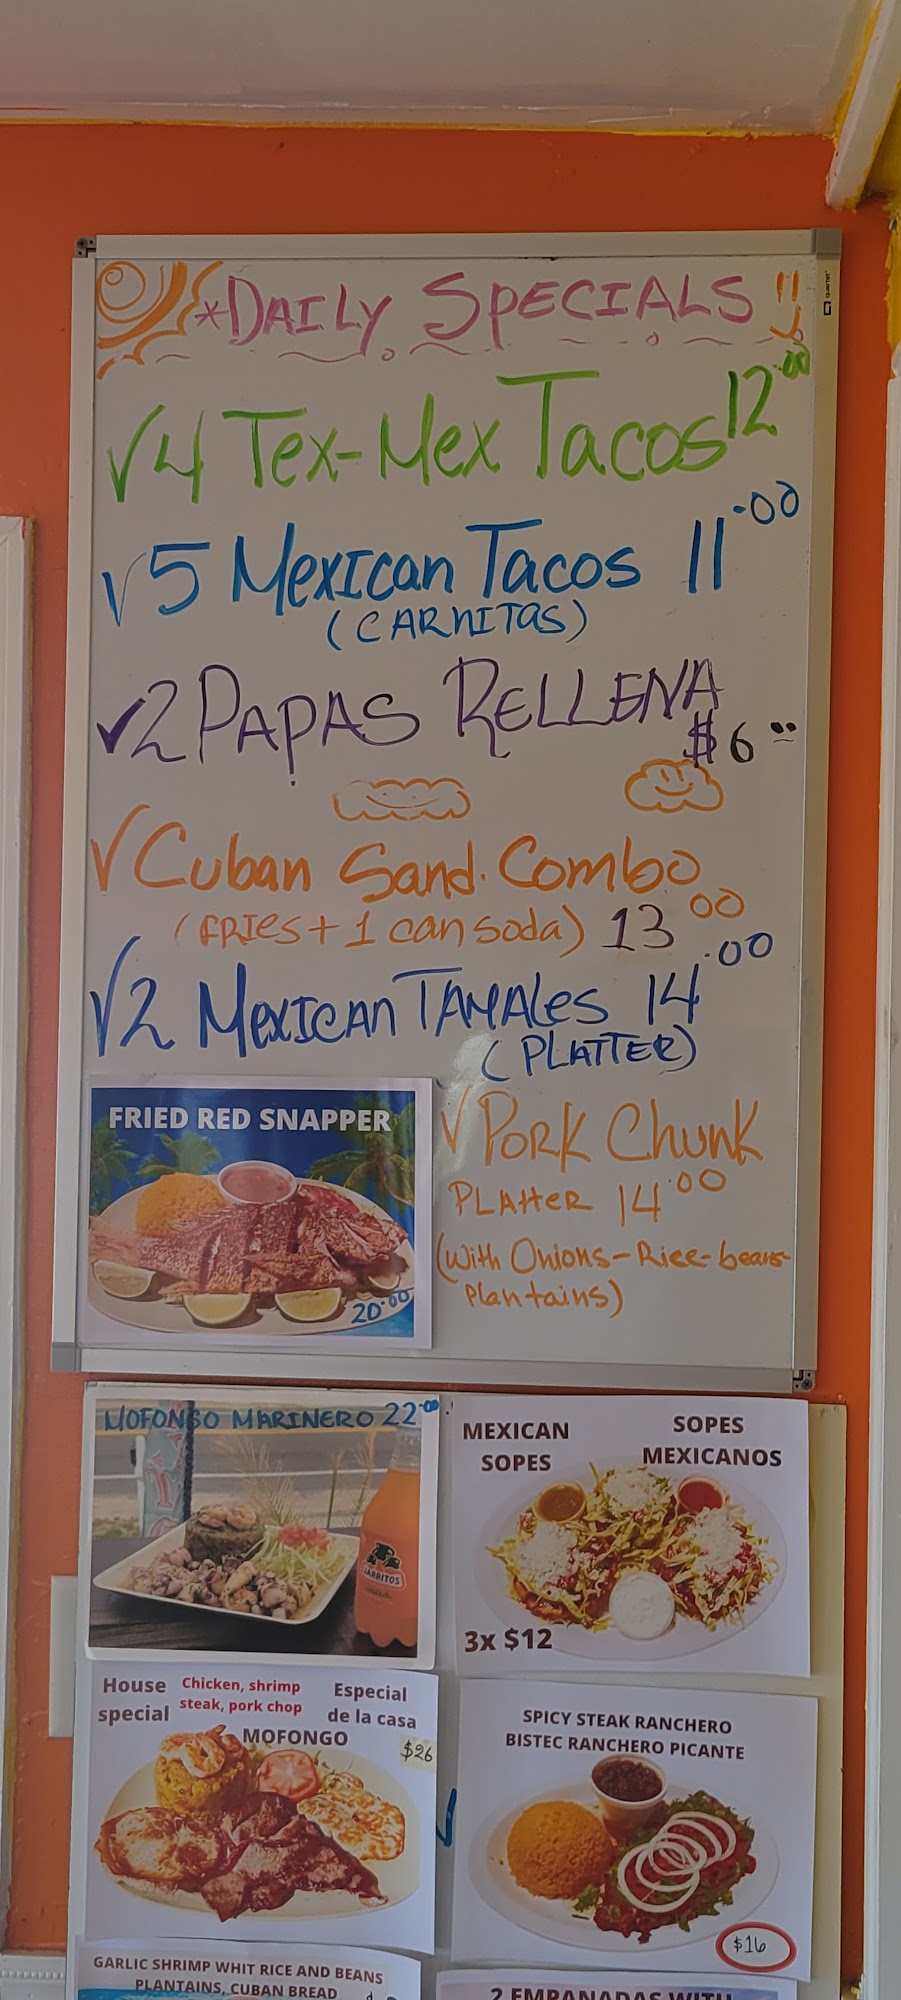 *DAILY SPECIALS!!
√4 Tex-Mex Tacos 12.00
√5 Mexican Tacos 11.00
(CARNITAS)
√2 PAPAS RELLENA
$6.00
√Cuban Sand. Combo
(FRIES + 1 can soda) 13 00
√2 Mexican TAMALES 14.00
(PLATTER)
FRIED RED SNAPPER
20.00
√PORK Chunk
PLATTER 14.00
(With Onions-Rice-beans-
Plantains)
MOFONGO MARINERO 22.00
JARRITOS
MEXICAN
SOPES
SOPES
MEXICANOS
3x $12
House
special
Chicken, shrimp
steak, pork chop
Especial
de la casa
MOFONGO
$26
SPICY STEAK RANCHERO
BISTEC RANCHERO PICANTE
$16
GARLIC SHRIMP WHIT RICE AND BEANS
PLANTAINS, CUBAN BREAD
2 EMPANADAS WITH